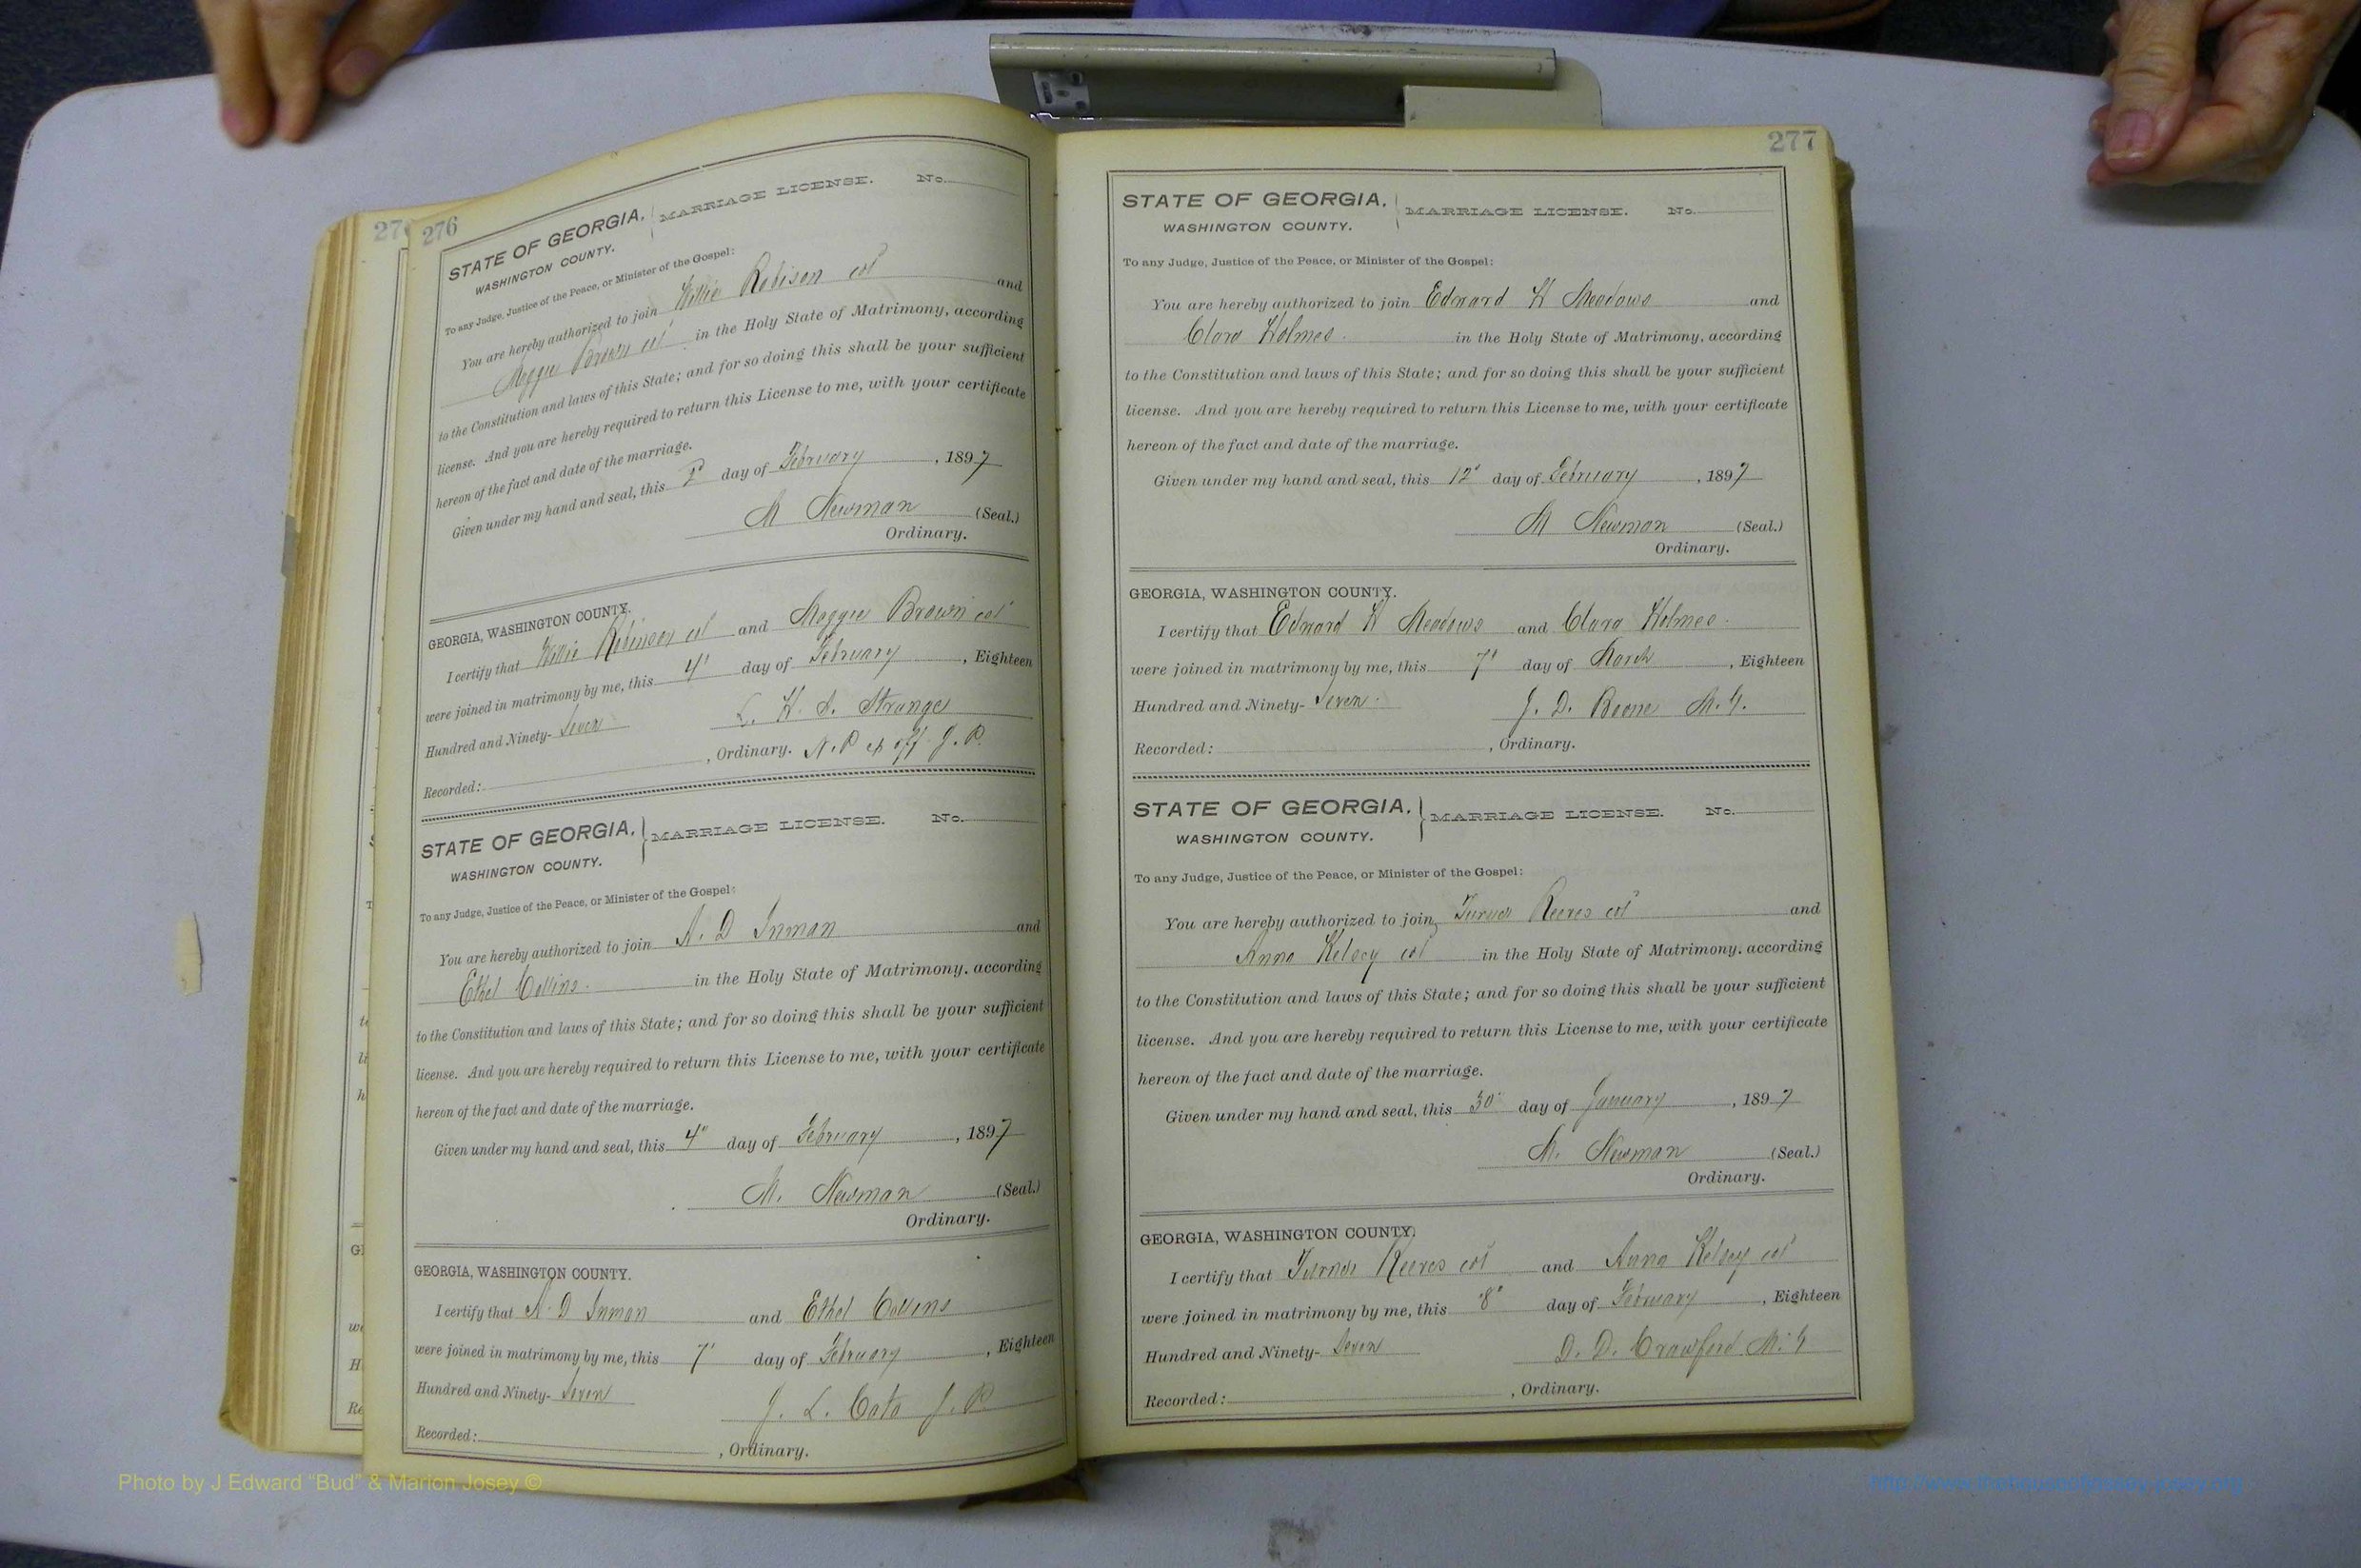 276
STATE OF GEORGIA. MARRIAGE LICENSE. No.
WASHINGTON COUNTY.
To any Judge, Justice of the Peace, or Minister of the Gospel:
You are hereby authorized to join Willie Robison col and
Maggie Brown col in the Holy State of Matrimony, according
to the Constitution and laws of this State; and for so doing this shall be your sufficient
license. And you are hereby required to return this License to me, with your certificate
hereon of the fact and date of the marriage.
Given under my hand and seal, this day of February, 1897
M Newman (Seal.)
Ordinary.
GEORGIA, WASHINGTON COUNTY.
I certify that Willie Robinson col and Maggie Brown col
were joined in matrimony by me, this 4' day of February, Eighteen
Hundred and Ninety- Seven L. H. S. Strange
Recorded: , Ordinary. N.P & off J.P.
STATE OF GEORGIA. } MARRIAGE LICENSE. No.
WASHINGTON COUNTY.
To any Judge, Justice of the Peace, or Minister of the Gospel:
You are hereby authorized to join A. D Inman and
Ethel Collins. in the Holy State of Matrimony, according
to the Constitution and laws of this State; and for so doing this shall be your sufficient
license. And you are hereby required to return this License to me, with your certificate
hereon of the fact and date of the marriage.
Given under my hand and seal, this 4" day of February, 1897
M. Newman (Seal.)
Ordinary.
GEORGIA, WASHINGTON COUNTY.
I certify that A. D Inman and Ethel Collins
were joined in matrimony by me, this 7' day of February, Eighteen
Hundred and Ninety- Seven J. L. Cato J.P.
Recorded: , Ordinary.
277
STATE OF GEORGIA. MARRIAGE LICENSE. No.
WASHINGTON COUNTY.
To any Judge, Justice of the Peace, or Minister of the Gospel:
You are hereby authorized to join Edward H Meadows and
Clara Holmes. in the Holy State of Matrimony, according
to the Constitution and laws of this State; and for so doing this shall be your sufficient
license. And you are hereby required to return this License to me, with your certificate
hereon of the fact and date of the marriage.
Given under my hand and seal, this 12" day of February, 1897
M Newman (Seal.)
Ordinary.
GEORGIA, WASHINGTON COUNTY.
I certify that Edward H Meadows and Clara Holmes.
were joined in matrimony by me, this 7' day of March, Eighteen
Hundred and Ninety- Seven. J. D. Boone M.G.
Recorded: , Ordinary.
STATE OF GEORGIA. } MARRIAGE LICENSE. No.
WASHINGTON COUNTY.
To any Judge, Justice of the Peace, or Minister of the Gospel:
You are hereby authorized to join Turner Reeves col and
Anna Kelsey col in the Holy State of Matrimony, according
to the Constitution and laws of this State; and for so doing this shall be your sufficient
license. And you are hereby required to return this License to me, with your certificate
hereon of the fact and date of the marriage.
Given under my hand and seal, this 30" day of January, 1897
M. Newman (Seal.)
Ordinary.
GEORGIA, WASHINGTON COUNTY.
I certify that Turner Reeves col and Anna Kelsey col
were joined in matrimony by me, this "8" day of February, Eighteen
Hundred and Ninety- Seven D. D. Crawford M.G
Recorded: , Ordinary.
Photo by J Edward “Bud” & Marion Josey ©